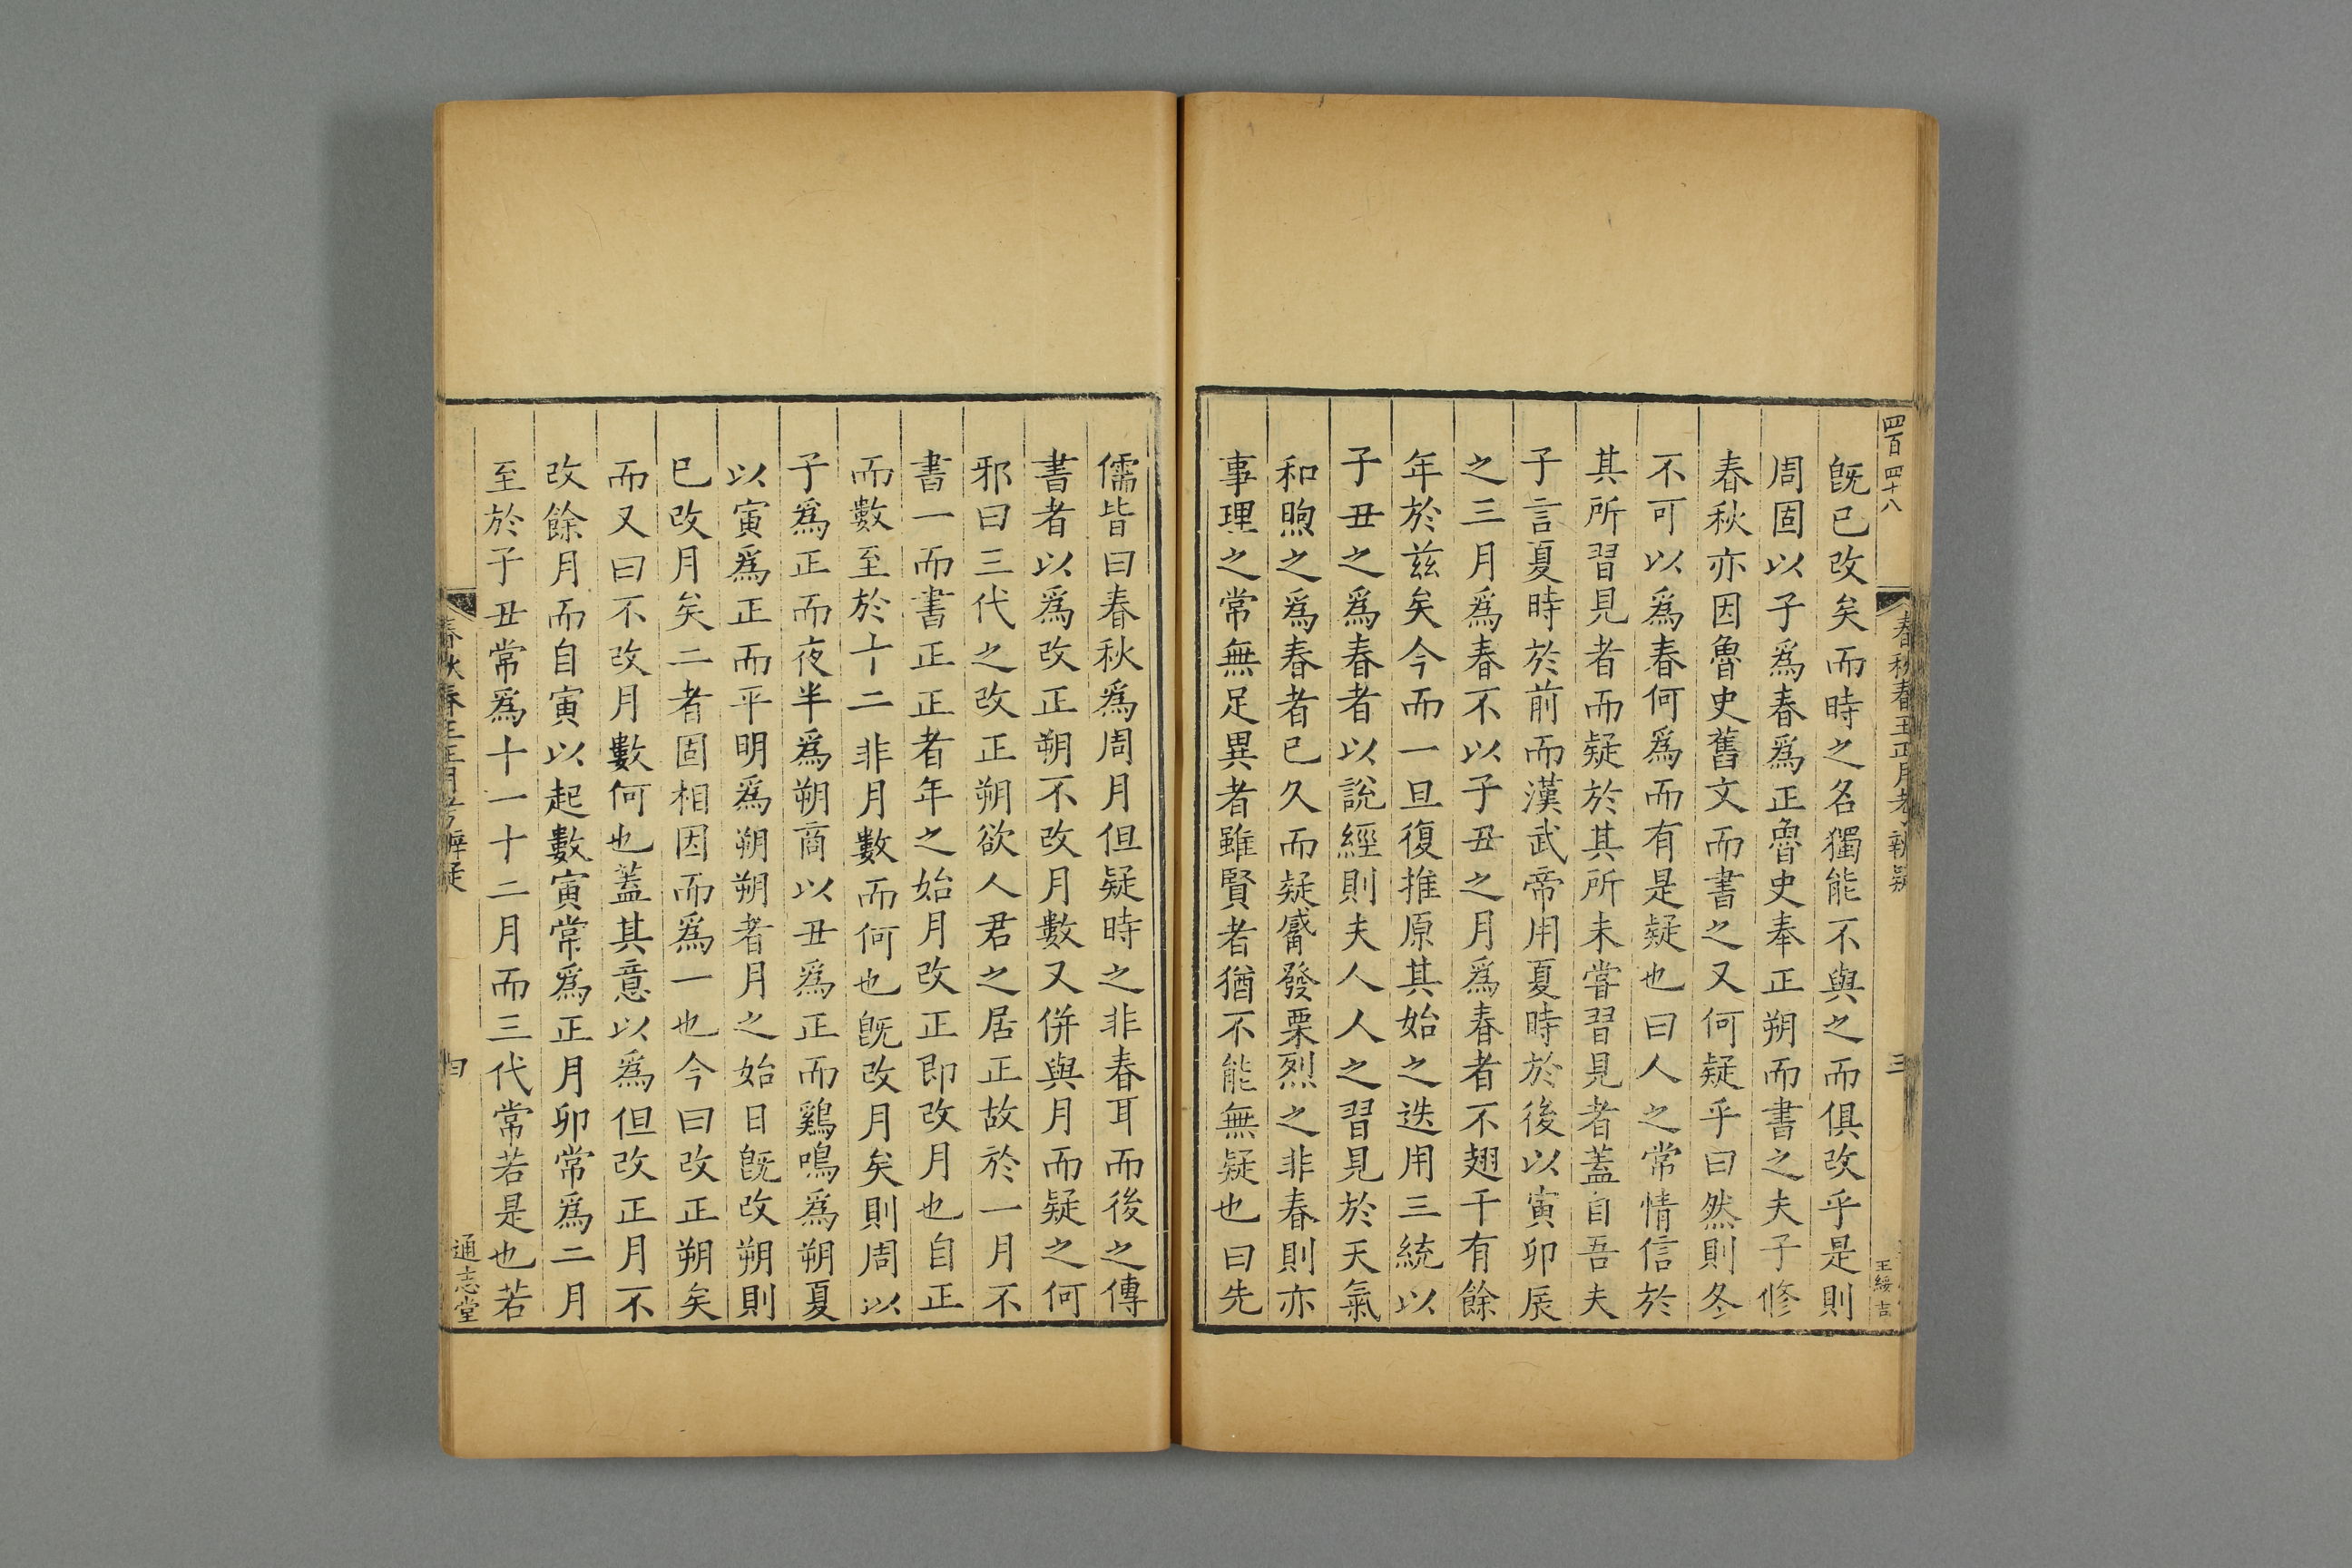 四百四十八
春秋春王正月考辨疑
三
王綏吉
既已改矣而時之名獨能不與之而俱改乎是則
周固以子爲春爲正魯史奉正朔而書之夫子修
春秋亦因魯史舊文而書之又何疑乎曰然則冬
不可以爲春何爲而有是疑也曰人之常情信於
其所習見者而疑於其所未嘗習見者蓋自吾夫
子言夏時於前而漢武帝用夏時於後以寅卯辰
之三月爲春不以子丑之月爲春者不翅千有餘
年於兹矣今而一旦復推原其始之迭用三統以
子丑之爲春者以說經則夫人人之習見於天氣
和煦之爲春者已久而疑觱發栗烈之非春則亦
事理之常無足異者雖賢者猶不能無疑也曰先
儒皆曰春秋爲周月但疑時之非春耳而後之傳
書者以爲改正朔不改月數又併與月而疑之何
邪曰三代之改正朔欲人君之居正故於一月不
書一而書正正者年之始月改正即改月也自正
而數至於十二非月數而何也既改月矣則周以
子爲正而夜半爲朔商以丑爲正而鷄鳴爲朔夏
以寅爲正而平明爲朔朔者月之始日既改朔則
已改月矣二者固相因而爲一也今曰改正朔矣
而又曰不改月數何也蓋其意以爲但改正月不
改餘月而自寅以起數寅常爲正月卯常爲二月
至於子丑常爲十一十二月而三代常若是也若
春秋春王正月考辨疑
四
通志堂